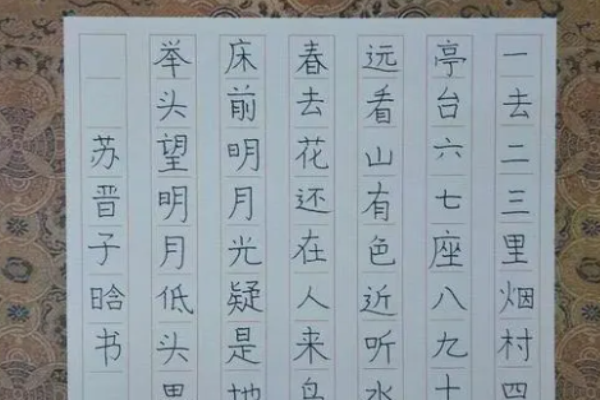 一去二三里烟村四
亭台六七座八九十
远看山有色近听水
春去花还在人来鸟
床前明月光疑是地
举头望明月低头思
苏晋子晗书